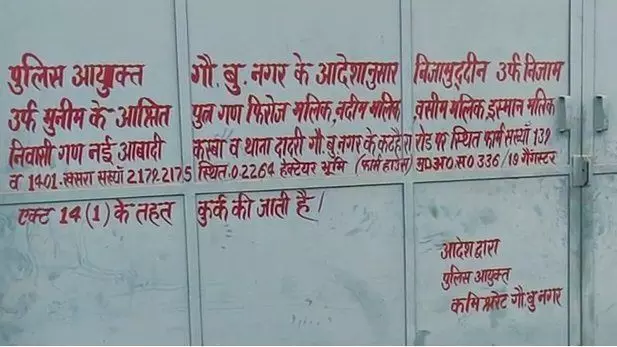 पुलिस आयुक्त गौ. बु. नगर के आदेशानुसार निजामुद्दीन उर्फ निजाम
उर्फ मुनीम के आश्रित पुत्र गण फिरोज मलिक, नदीम मलिक, वसीम मलिक, इस्मान मलिक
निवासी गण नई आबादी कस्बा व थाना दादरी गौ. बु. नगर के कटहैरा रोड पर स्थित फार्म संख्याँ 139
व 1401. खसरा संख्याँ 2172. 2175 स्थित. 0.2264 हेक्टेयर भूमि (फार्म हाउस) मु०अ०स० 336/19 गैंगस्टर
एक्ट 14(1) के तहत कुर्क की जाती है।
आदेश द्वारा
पुलिस आयुक्त
कमिश्नरेट गौ. बु नगर